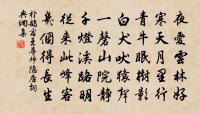 夜愛雲林好
寒天月里行
青牛眠樹影
白犬吠猿聲
一磬山院靜
千燈溪路明
從來此峰客
幾個得長生
於鵠宿王尊師隐居詞
典網集